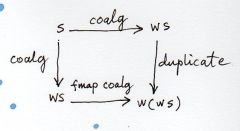 coalg
S WS
coalg duplicate
fmap coalg
WS W(WS)